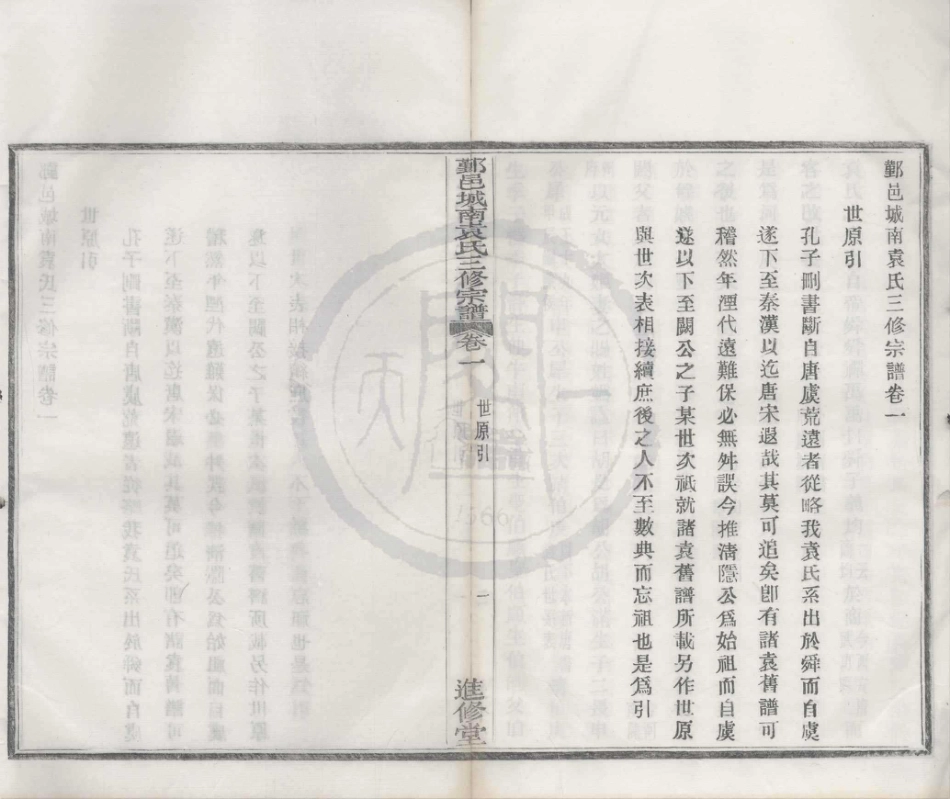 鄞邑城南袁氏三修宗譜卷一
世原引
孔子刪書斷自唐虞荒遠者從略我袁氏系出於舜而自虞
遂下至秦漢以迄唐宋遐哉其莫可追矣卽有諸袁舊譜可
稽然年湮代遠難保必無舛誤今推清隱公爲始祖而自虞
遂以下至闕公之子某世次祇就諸袁舊譜所載另作世原
與世次表相接續庶後之人不至數典而忘祖也是爲引
鄞邑城南袁氏三修宗譜
卷一
世原引
一
進修堂
天一閣
1566